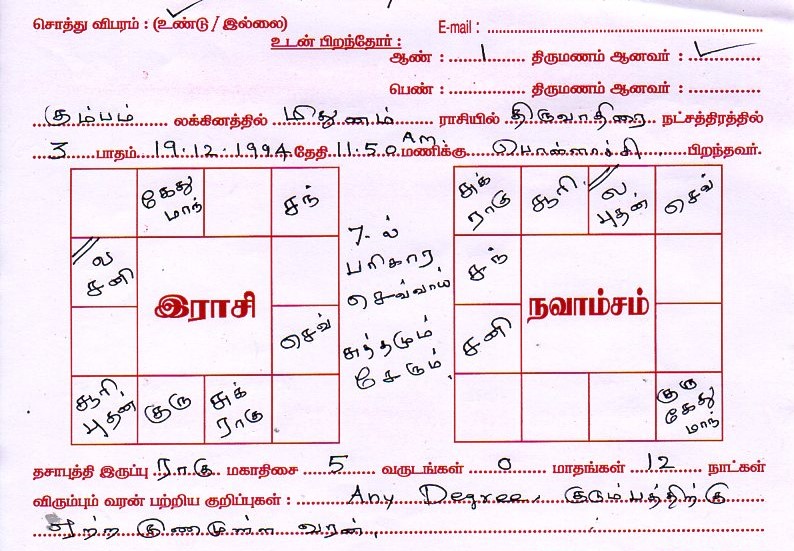 சொத்து விபரம் : (உண்டு / இல்லை) E-mail :
உடன் பிறந்தோர் :
ஆண் : 1 திருமணம் ஆனவர் : ✓
பெண் : திருமணம் ஆனவர் :
கும்பம் லக்கினத்தில் மிதுனம் ராசியில் திருவாதிரை நட்சத்திரத்தில்
3 பாதம் 19.12.1994 தேதி 11.50 Am. மணிக்கு பொள்ளாச்சி பிறந்தவர்.
கேது மாந்
சந்
ல சனி
இராசி
செவ்
சூரி புதன்
குரு
சுக் ராகு
7-ல்
பரிகார
செவ்வாய்
சுத்தமும்
சேரும்.
சுக் ராகு
சூரி
ல புதன்
செவ்
சந்
நவாம்சம்
சனி
குரு கேது மாந்
தசாபுத்தி இருப்பு ராகு மகாதிசை 5 வருடங்கள் 0 மாதங்கள் 12 நாட்கள்
விரும்பும் வரன் பற்றிய குறிப்புகள் : Any Degree, குடும்பத்திற்கு
ஏற்ற குணமுள்ள வரன்.